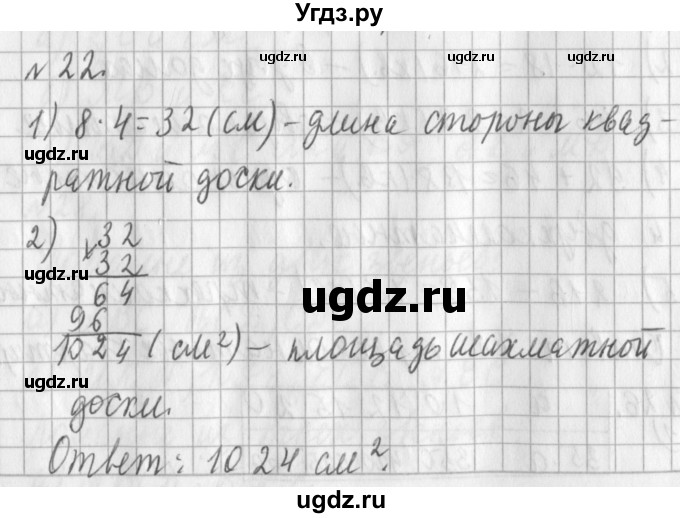 Угдз.ру
№ 22.
ugdz.ru ugdz.ru
1) 8 · 4 = 32 (см) – длина стороны квад-
ugdz.ru
ратной доски.
2) × 32
ugdz.ru 32
64
ugdz.ru
96
1024 (см²) – площадь шахматной
ugdz.ru
доски.
Ответ: 1024 см².
ugdz.ru ugdz.ru
ugdz.ru